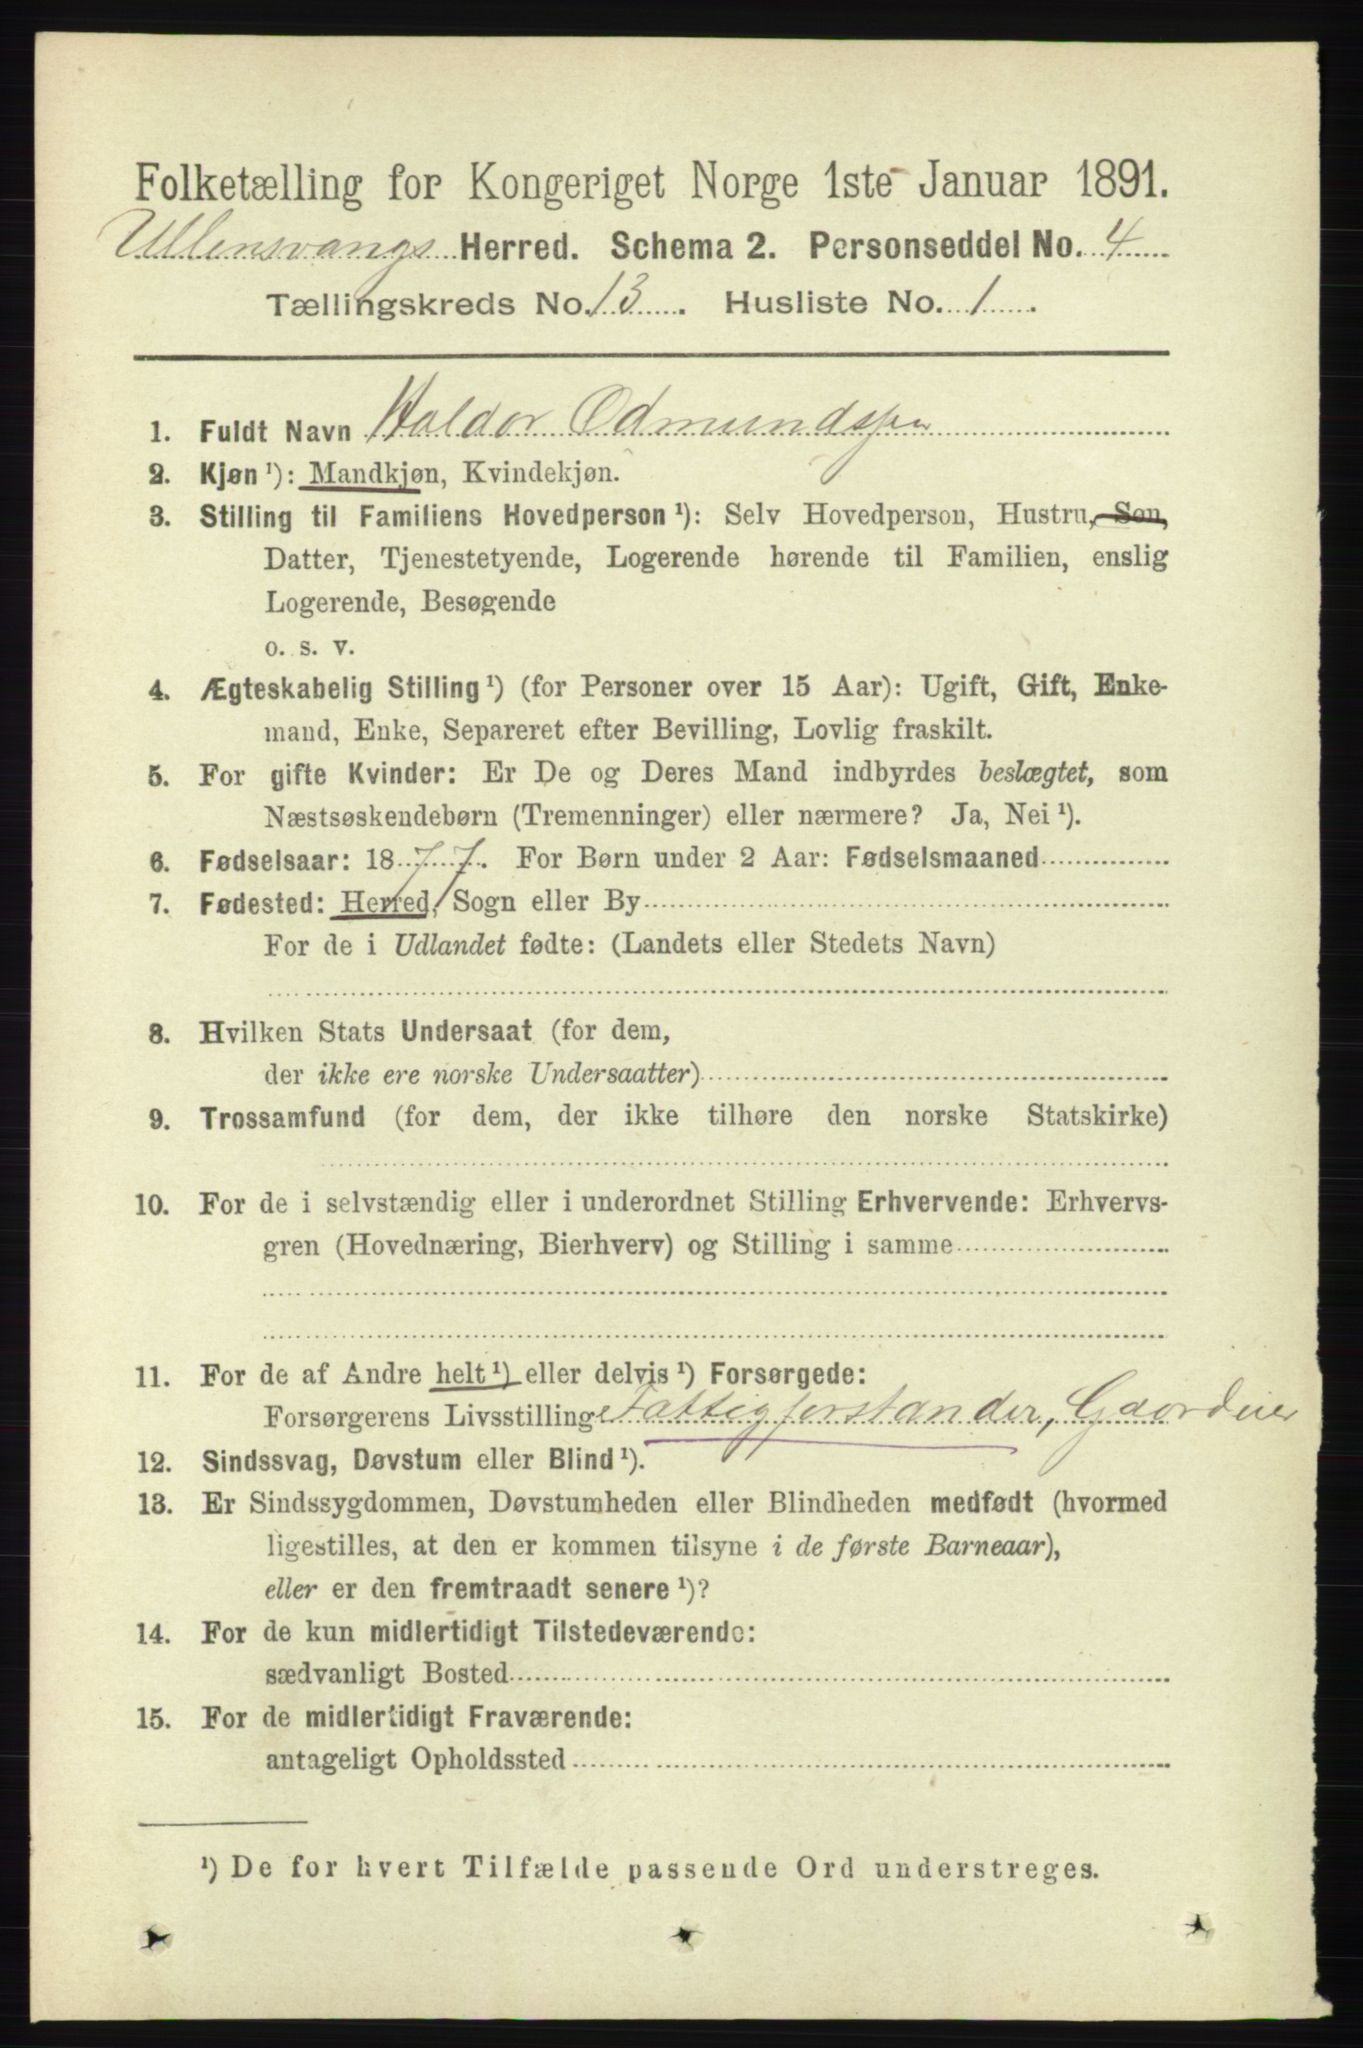 Folketælling for Kongeriget Norge 1ste Januar 1891.
Ullensvangs Herred. Schema 2. Personseddel No. 4
Tællingskreds No. 13. Husliste No. 1.
1. Fuldt Navn Haldor Odmundssen
2. Kjøn ¹): Mandkjøn, Kvindekjøn.
3. Stilling til Familiens Hovedperson ¹): Selv Hovedperson, Hustru, Søn,
Datter, Tjenestetyende, Logerende hørende til Familien, enslig
Logerende, Besøgende
o. s. v.
4. Ægteskabelig Stilling ¹) (for Personer over 15 Aar): Ugift, Gift, Enke-
mand, Enke, Separeret efter Bevilling, Lovlig fraskilt.
5. For gifte Kvinder: Er De og Deres Mand indbyrdes beslægtet, som
Næstsøskendebørn (Tremenninger) eller nærmere? Ja, Nei ¹).
6. Fødselsaar: 1877. For Børn under 2 Aar: Fødselsmaaned
7. Fødested: Herred, Sogn eller By
For de i Udlandet fødte: (Landets eller Stedets Navn)
8. Hvilken Stats Undersaat (for dem,
der ikke ere norske Undersaatter)
9. Trossamfund (for dem, der ikke tilhøre den norske Statskirke)
10. For de i selvstændig eller i underordnet Stilling Erhvervende: Erhvervs-
gren (Hovednæring, Bierhverv) og Stilling i samme
11. For de af Andre helt ¹) eller delvis ¹) Forsørgede:
Forsørgerens Livsstilling Fattigforstander, Gaardeier
12. Sindssvag, Døvstum eller Blind ¹).
13. Er Sindssygdommen, Døvstumheden eller Blindheden medfødt (hvormed
ligestilles, at den er kommen tilsyne i de første Barneaar),
eller er den fremtraadt senere ¹)?
14. For de kun midlertidigt Tilstedeværende:
sædvanligt Bosted
15. For de midlertidigt Fraværende:
antageligt Opholdssted
¹) De for hvert Tilfælde passende Ord understreges.